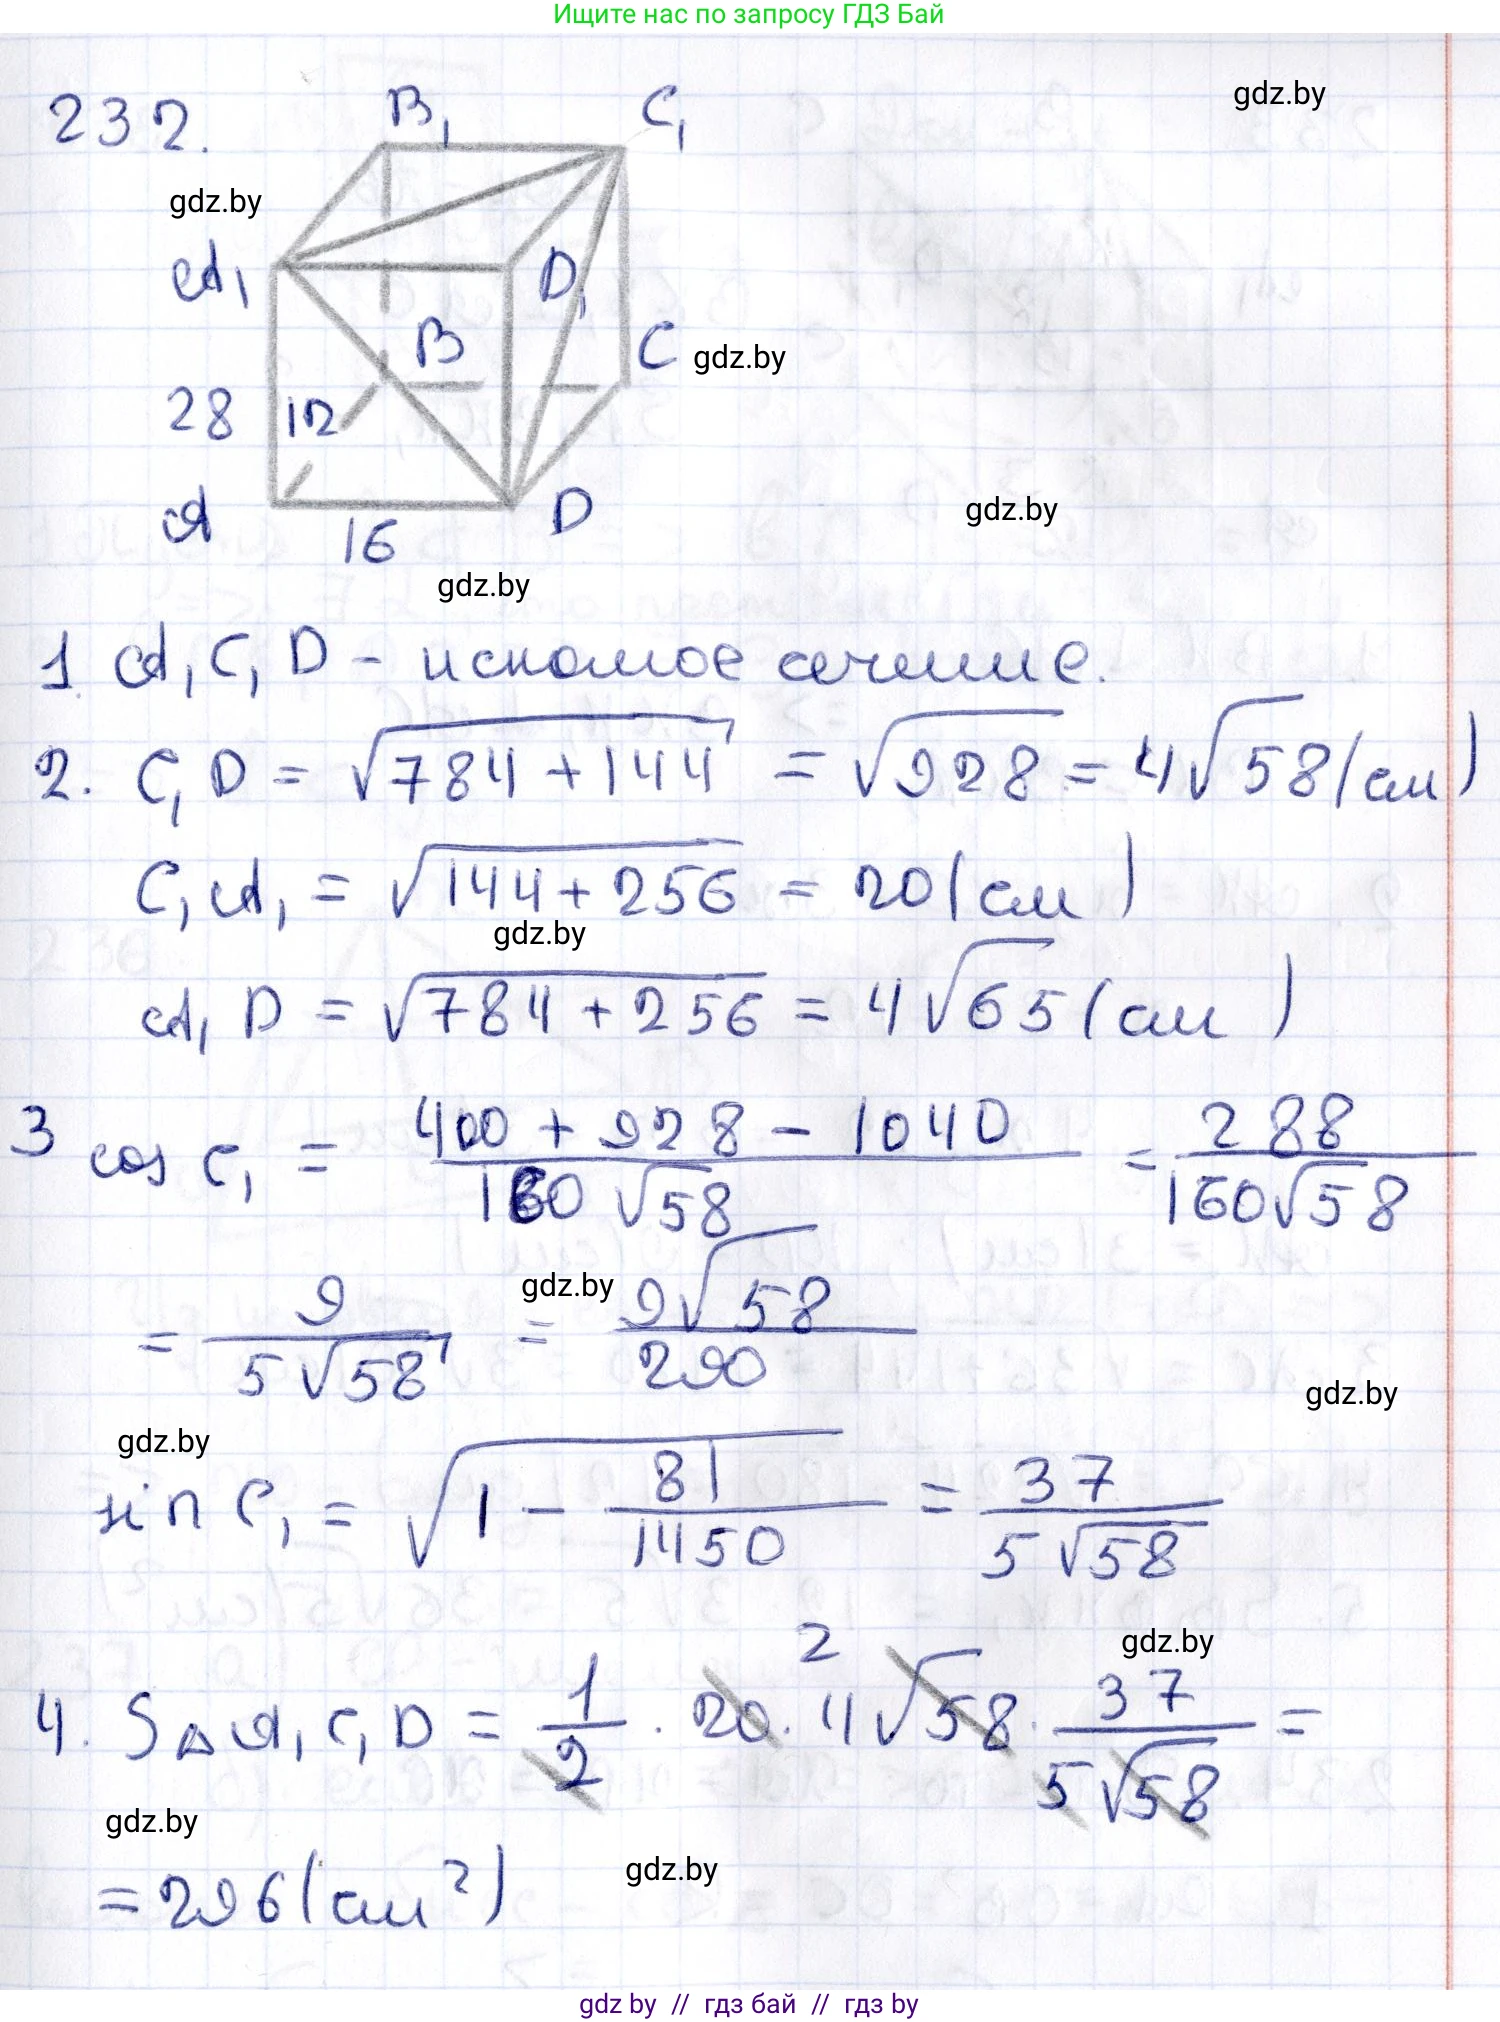 Ищите нас по запросу ГДЗ Бай
gdz.by
232.
B₁ C₁
gdz.by
A₁ D₁
B C gdz.by
28 12
A 16 D gdz.by
gdz.by
1. A₁C₁D - искомое сечение.
2. C₁D = √(784+144) = √928 = 4√58 (см)
C₁A₁ = √(144+256) = 20 (см)
gdz.by
A₁D = √(784+256) = 4√65 (см)
3 cos C₁ = (400+928-1040)/(160√58) = 288/(160√58)
= 9/(5√58) = 9√58/290
gdz.by
gdz.by
gdz.by
sin C₁ = √(1 - 81/1450) = 37/(5√58)
gdz.by
4. S△A₁C₁D = 1/2 · 20 · 4√58 · 37/(5√58) =
2
gdz.by
= 296 (см²)
gdz.by
gdz by // гдз бай // гдз by